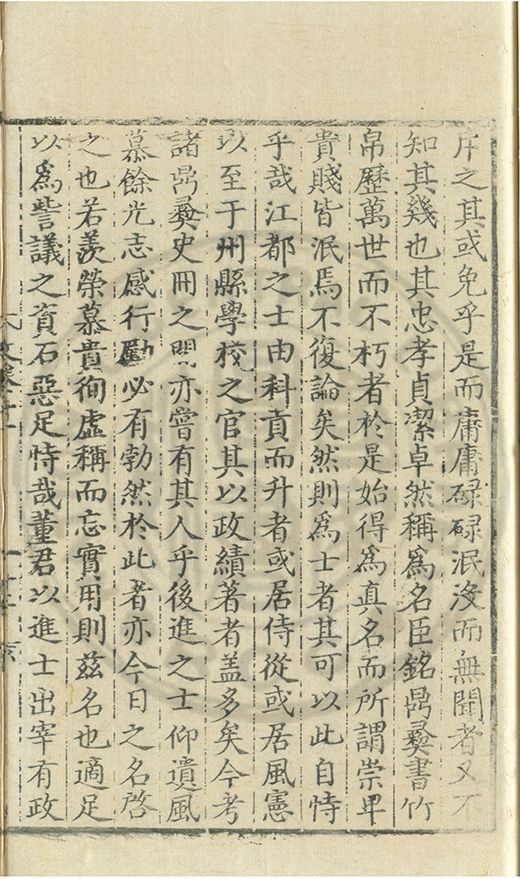 斥之其或免乎是而庸庸碌碌泯没而無聞者又不
知其幾也其忠孝貞潔卓然稱為名臣銘鼎彝書竹
帛歷萬世而不朽者於是始得為真名而所謂崇卑
貴賤皆泯焉不復論矣然則為士者其可以此自恃
乎哉江都之士由科貢而升者或居侍從或居風憲
以至于州縣學校之官其以政績著者盖多矣今考
諸鼎彝史冊之間亦嘗有其人乎後進之士仰遺風
慕餘光志感行勵必有勃然於此者亦今日之名啓
之也若羡榮慕貴徇虚稱而忘實用則兹名也適足
以為訾議之資石惡足恃哉董君以進士出宰有政